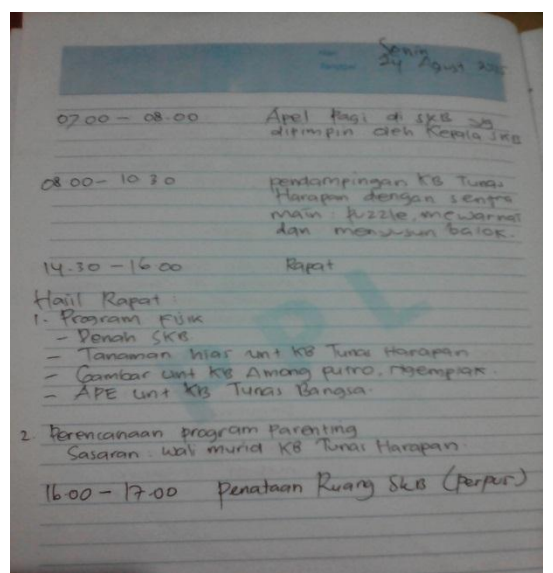 Senin
24 Agust 2015
07.00 - 08.00 Apel Pagi di SKB yg
dipimpin oleh Kepala SKB
08.00 - 10.30 pendampingan KB Tunas
Harapan dengan sentra
main : puzzle, mewarnai
dan menyusun balok.
14.30 - 16.00 Rapat
Hasil Rapat :
1. Program Fisik
- Denah SKB
- Tanaman hias unt KB Tunas Harapan
- Gambar unt KB Among putro. Ngemplak.
- APE unt KB Tunas Bangsa.
2. Perencanaan program Parenting
Sasaran : wali murid KB Tunas Harapan.
16.00 - 17.00 Penataan Ruang SKB (perpus)
PPL